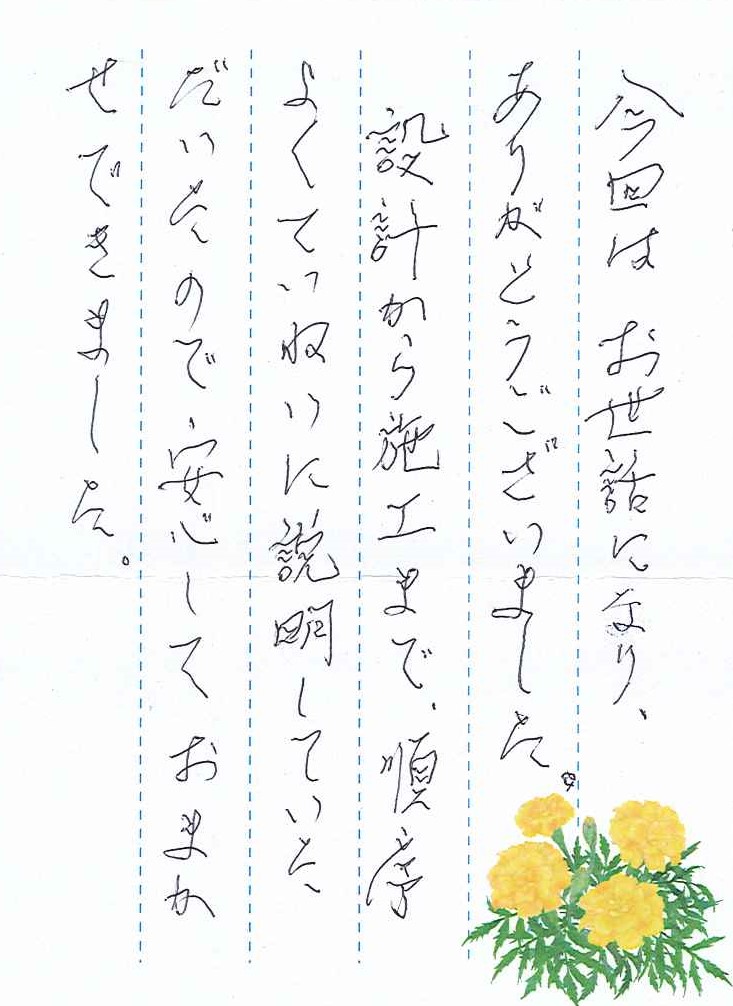 今回は お世話になり、
ありがとうございました。
設計から施工まで、順序
よくていねいに説明していた
だいたので、安心して おまか
せできました。